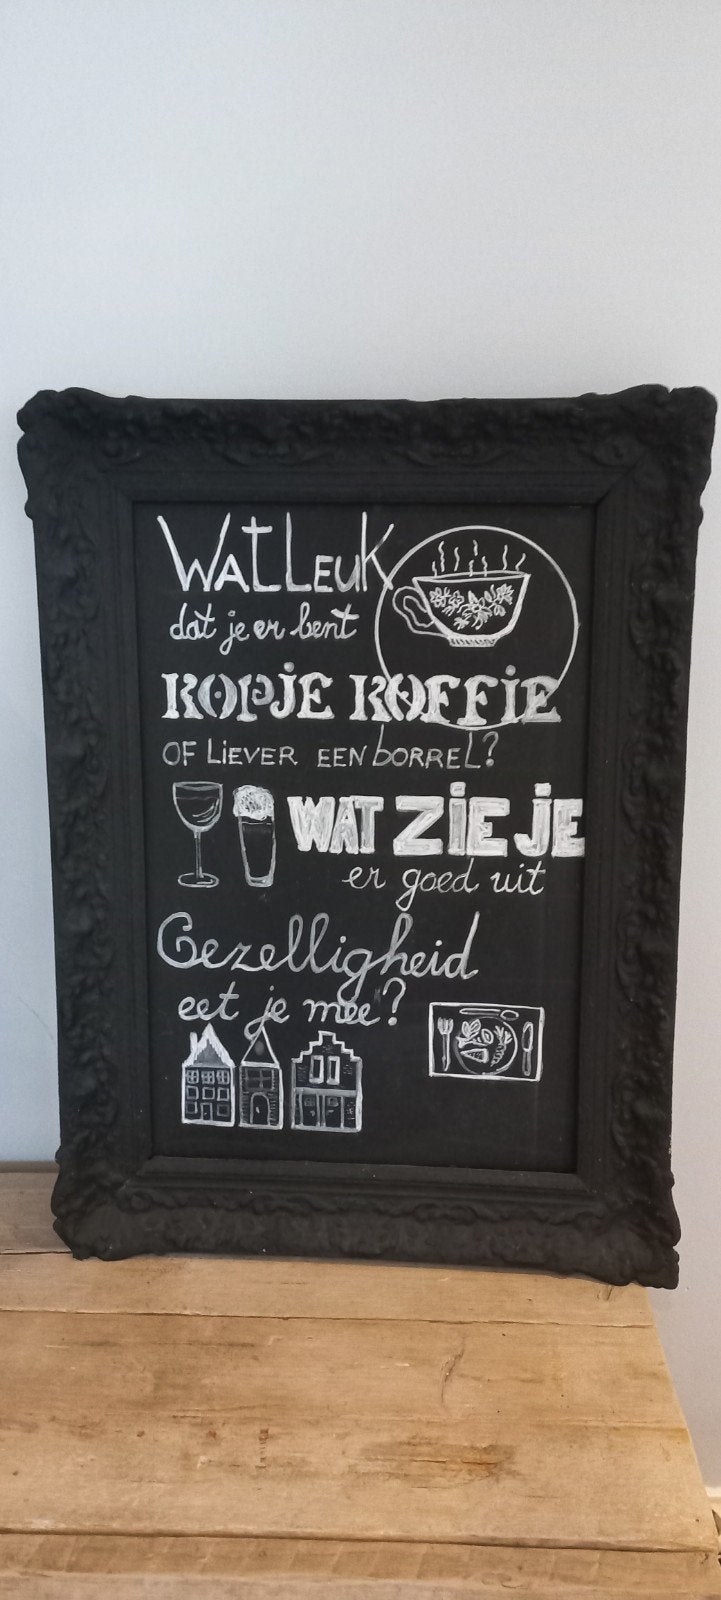 WAT LEUK
dat je er bent
KOPJE KOFFIE
OF LIEVER EEN BORREL?
WAT ZIE JE
er goed uit
Gezelligheid
eet je mee?